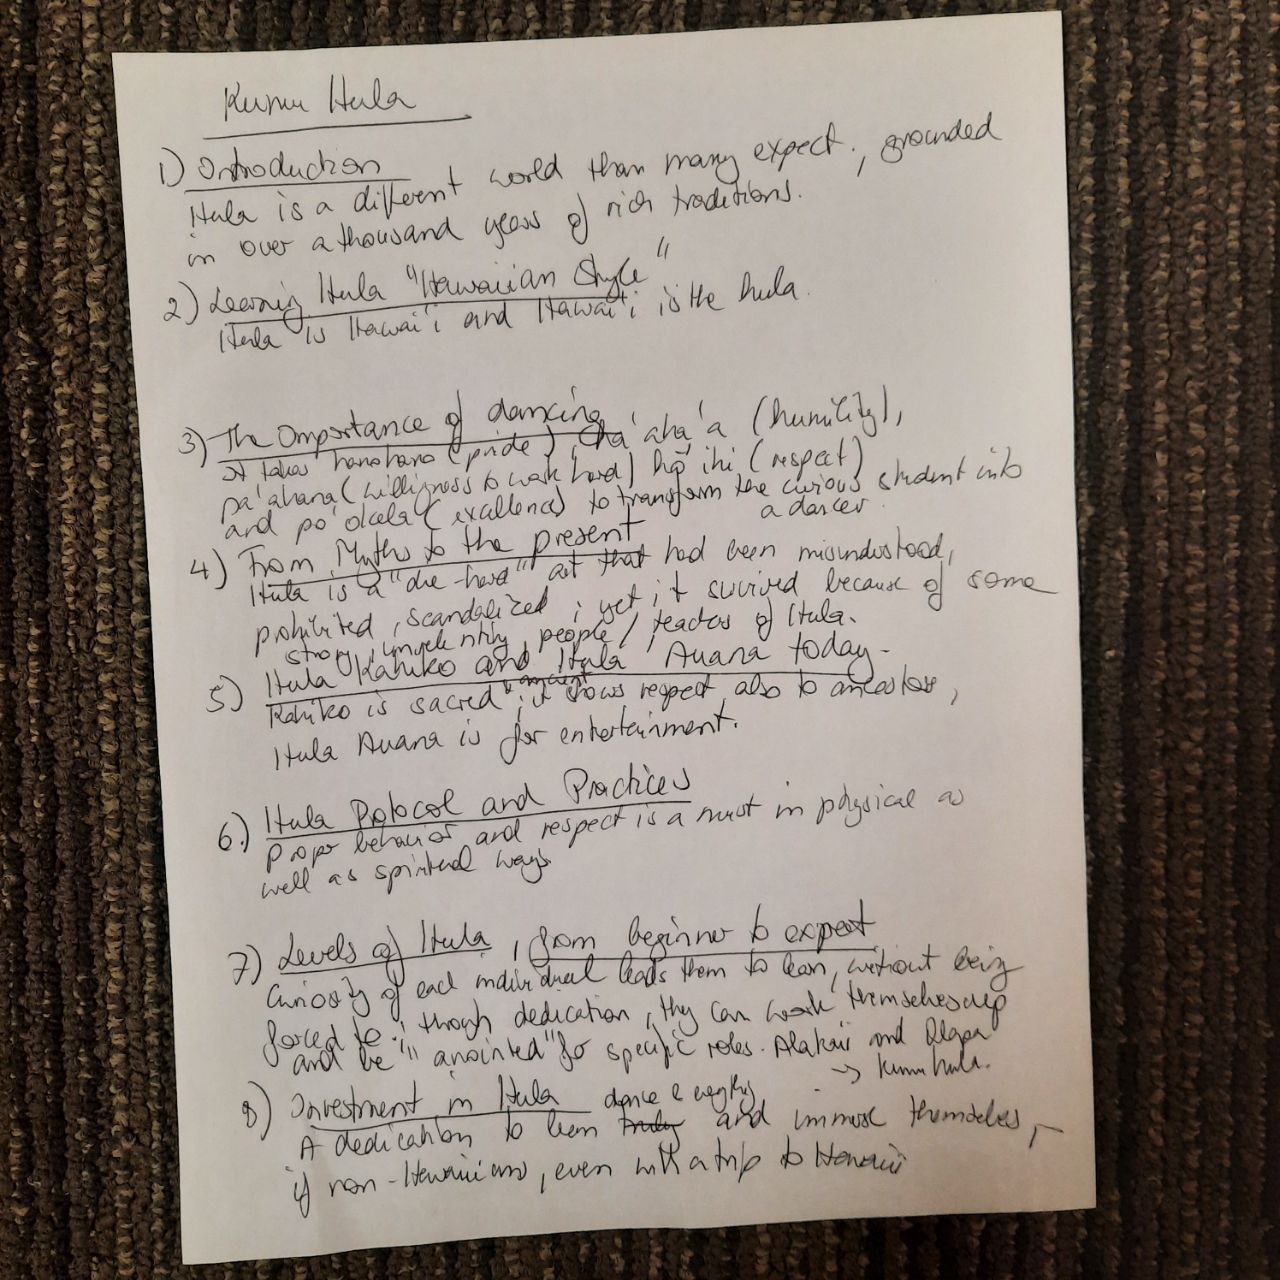 Kumu Hula
1) Introduction
Hula is a different world than many expect, grounded
in over a thousand years of rich traditions.
2) Learning Hula "Hawaiian Style"
Hula is Hawai'i and Hawai'i is the hula.
3) The Importance of dancing
It takes hanohano (pride), ha'aha'a (humility),
pa'ahana (willigness to work hard) ho'ihi (respect)
and po'okela (excellence) to transform the curious student into
a dancer.
4) From Myths to the present
Hula is a "die-hard" art that had been misunderstood,
prohibited, scandalized; yet it survived because of some
strong, people/teachers of Hula.
5) Hula Kahiko and Hula Auana today.
Kahiko is sacred & ancient; it shows respect also to ancestors,
Hula Auana is for entertainment.
6.) Hula Protocol and Practices
Proper behavior and respect is a must in physical as
well as spiritual ways
7) Levels of Hula, from beginner to expert
Curiosity of each individual leads them to learn, without being
forced to; though dedication, they can work themselves up
and be "anointed" for specific roles. Alakai and Olapa
-> Kumu hula.
8) Investment in Hula
A dedication to learn truly dance & and immerse themselves,
if non-Hawaiians, even with a trip to Hawaii